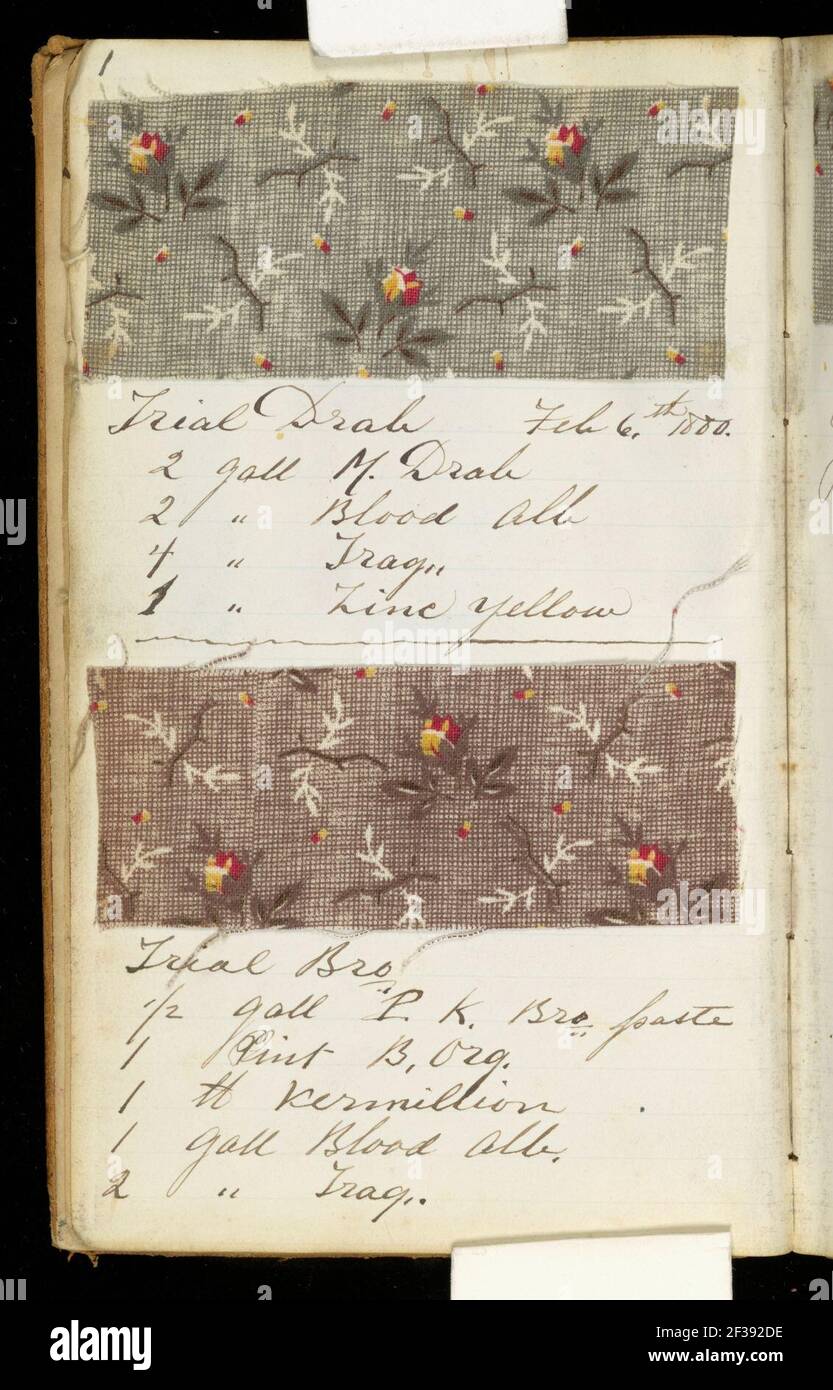 1
Trial Drab Feb 6.th 1880.
2 gall M. Drab
2 " Blood Alb
4 " Trag,,
1 " Zinc Yellow
Trial Bro
1/2 gall P. K. Bro paste
1 Pint B. Org.
1 lb Vermillion
1 gall Blood Alb.
2 " Trag,.
alamy
Image ID: 2F392DE
www.alamy.com